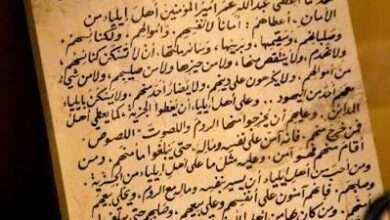 أعطى عبد الله عمر أمير المؤمنين أهل إيلياء من
الأمان. أعطاهم: أماناً لأنفسهم. وأموالهم. ولكنائسهم.
وصلبانهم. وسقيمها. وبريئها. وسائر ملتها. أن لا تسكن كنائسهم.
ولا تهدم. ولا ينتقص منها. ولا من حيزها ولا من صليبهم. ولا من شيء
من أموالهم. ولا يكرهون على دينهم. ولا يضار أحد منهم. ولا يسكن بإيلياء
معهم أحد من اليهود.. وعلى أهل إيلياء أن يعطوا الجزية. كما يعطي أهل
المدائن. وعليهم أن يخرجوا منها الروم واللصوت: اللصوص.
فمن خرج منهم. فإنه آمن على نفسه وماله. حتى يبلغوا مأمنهم. ومن
أقام منهم فهو آمن. وعليه مثل ما على أهل إيلياء من الجزية.
ومن أحب من أهل إيلياء أن يسير بنفسه وماله مع الروم. ويخلي بيعهم
وصلبهم. فإنهم آمنون على أنفسهم وعلى بيعهم. وصلبهم حتى يبلغوا